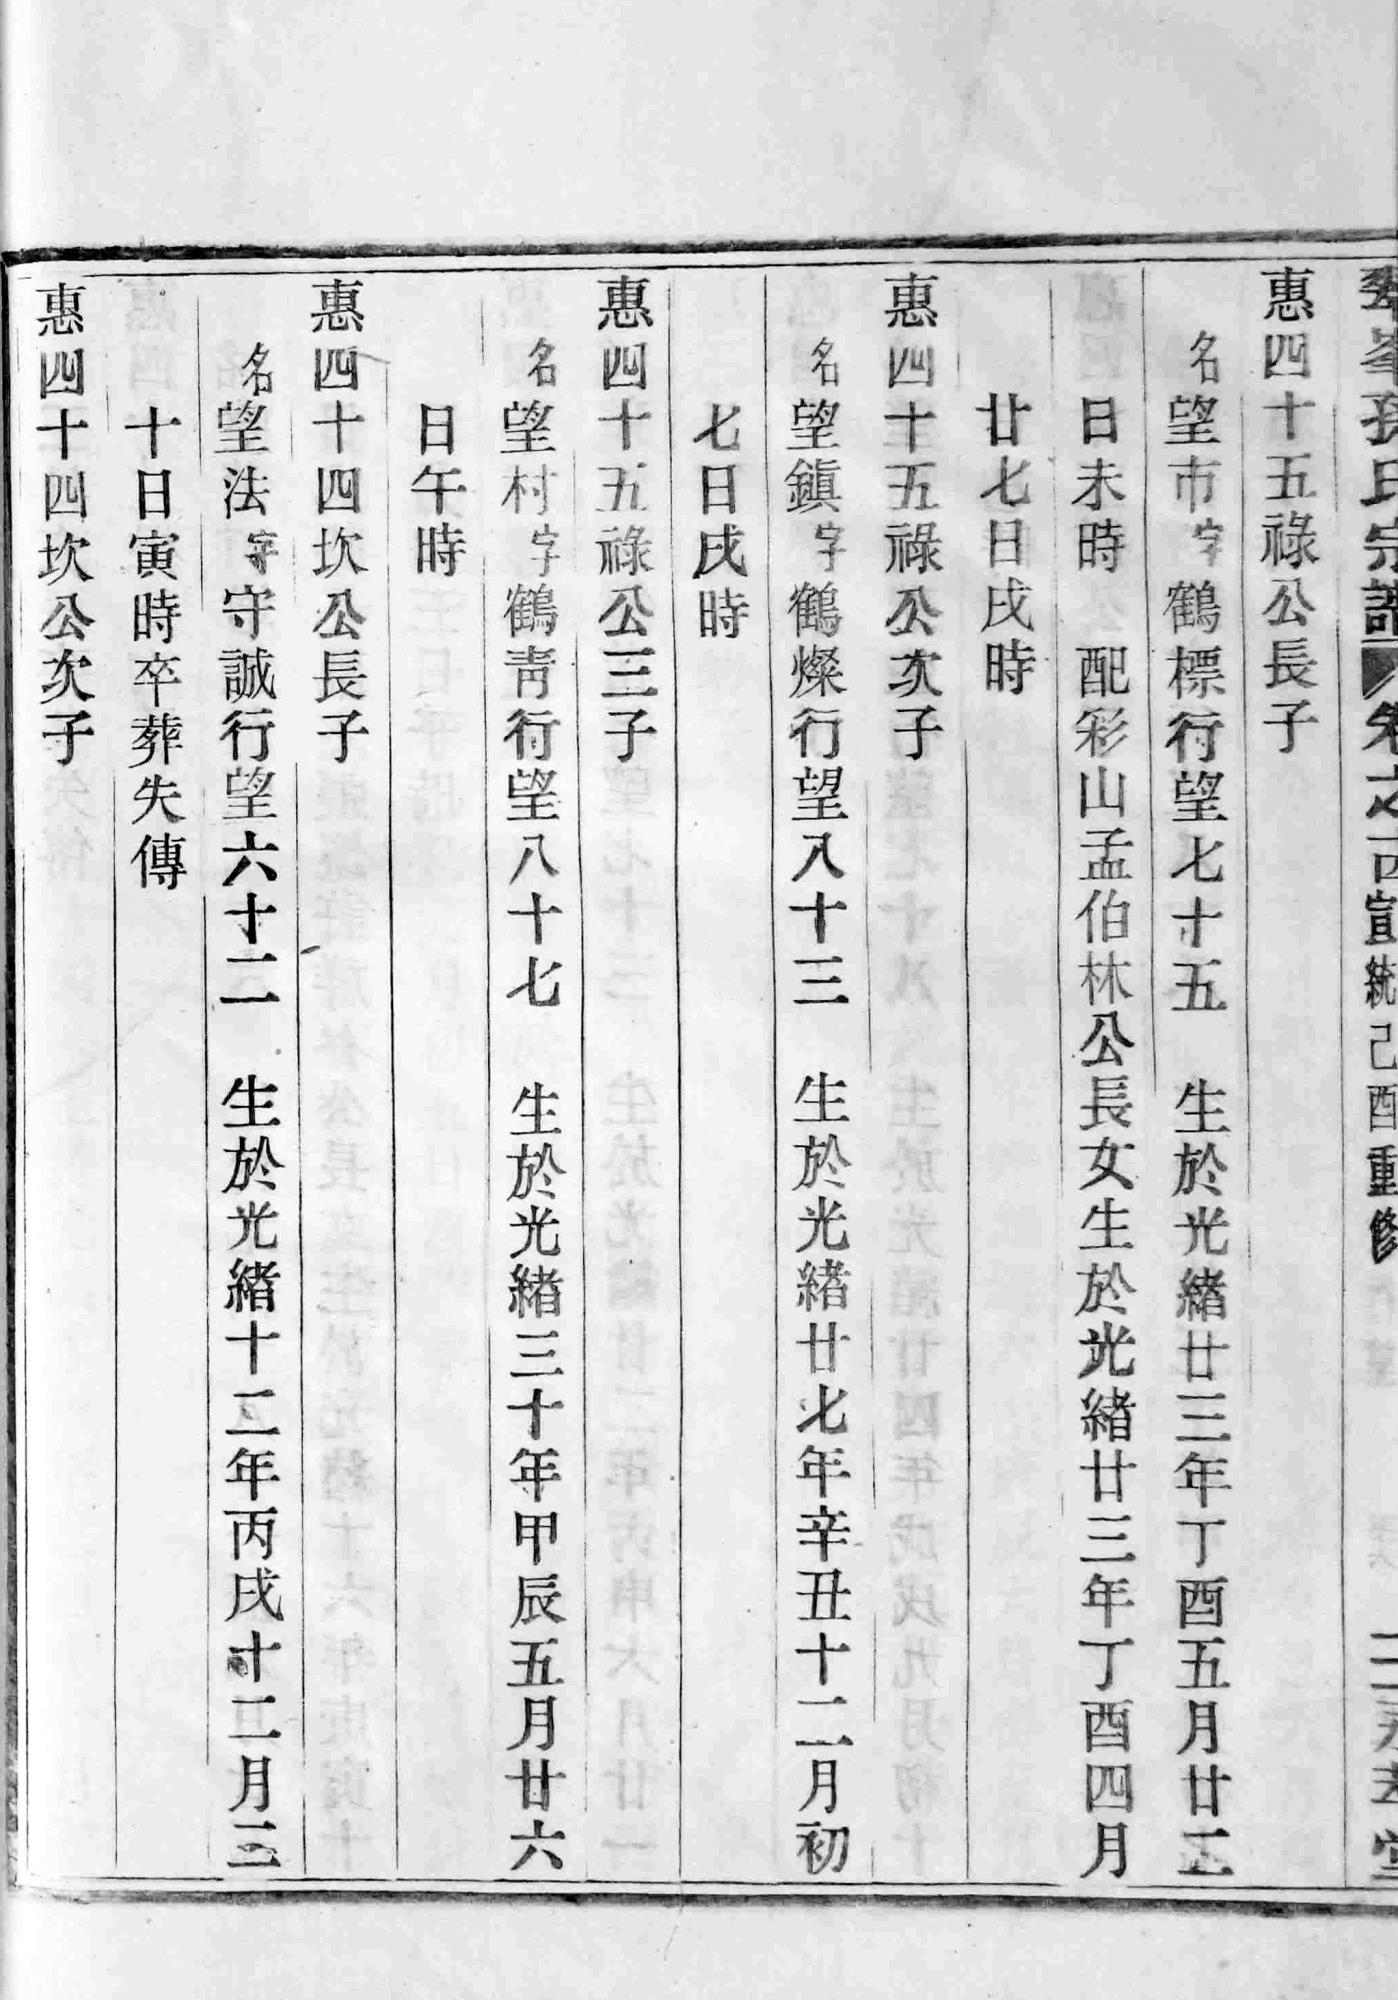 孫氏宗譜 卷之 宣統己酉重修
惠四十五祿公長子
名望市字鶴標行望七十五 生於光緒廿三年丁酉五月廿二
日未時 配彩山孟伯林公長女生於光緒廿三年丁酉四月
廿七日戌時
惠四十五祿公次子
名望鎮字鶴燦行望八十三 生於光緒廿七年辛丑十二月初
七日戌時
惠四十五祿公三子
名望村字鶴靑行望八十七 生於光緒三十年甲辰五月廿六
日午時
惠四十四坎公長子
名望法字守誠行望六十二 生於光緒十二年丙戌十二月三
十日寅時卒葬失傳
惠四十四坎公次子